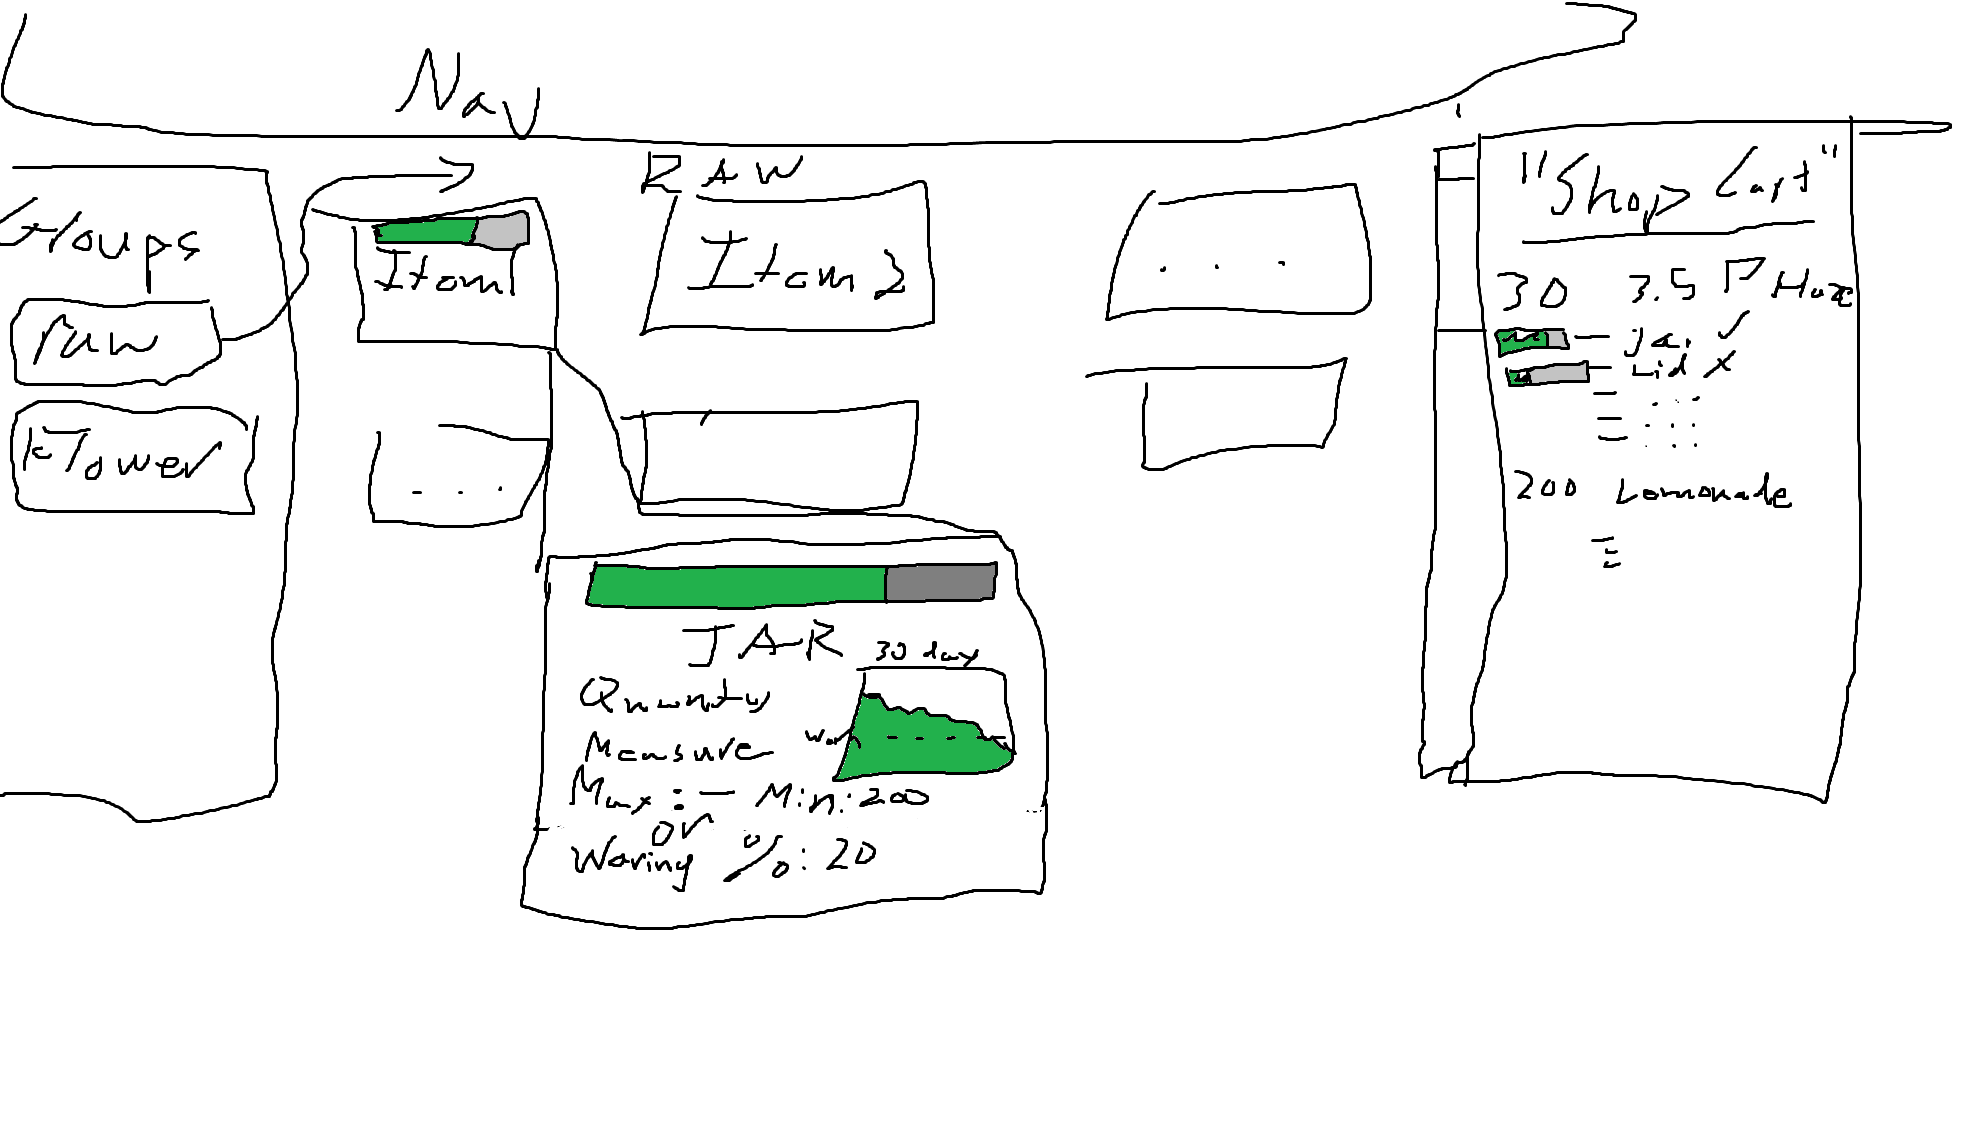 Nav
Groups
raw
Flower
RAW
Item 1
Item 2
. . .
. . .
JAR
30 day
Quantity
Measure
Max : — Min: 200
or
Waring %: 20
"Shop Cart"
30 3.5 P Haze
— jar ✓
— Lid x
200 Lemonade